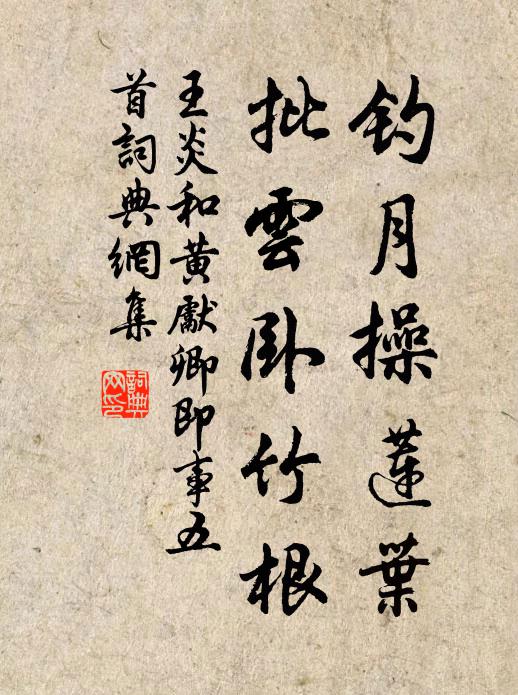 钓月操蓮葉
批雲卧竹根
王炎和黄獻卿即事五
首詞典網集
詞典
网印